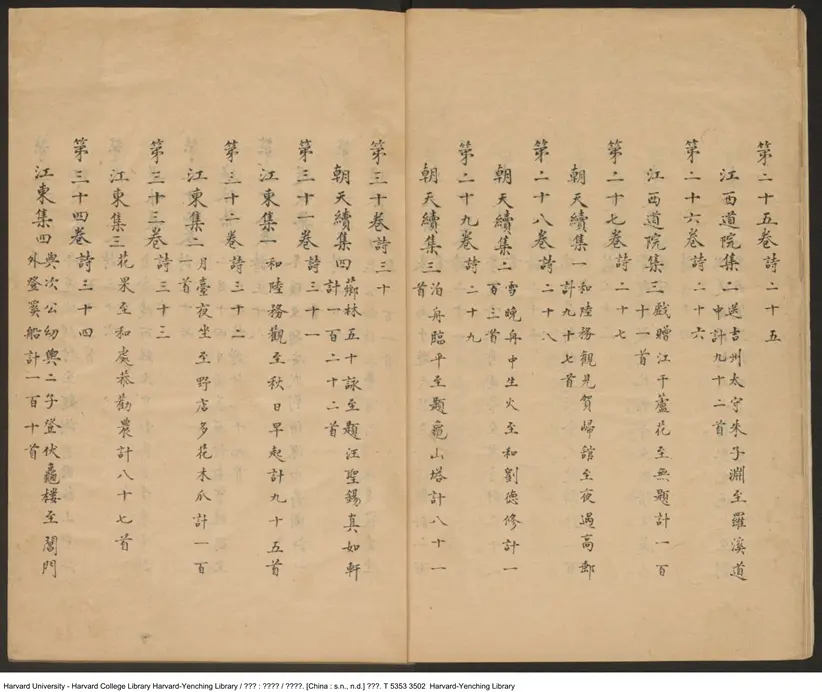 第二十五卷詩二十五
江西道院集二送吉州太守朱子淵至羅溪道
中計九十二首
第二十六卷詩二十六
江西道院集三戲贈江干蘆花至無題計一百
十一首
第二十七卷詩二十七
朝天續集一和陸務觀見賀歸館至夜過高郵
計九十七首
第二十八卷詩二十八
朝天續集二雪曉舟中生火至和劉德修計一
百三首
第二十九卷詩二十九
朝天續集三泊舟臨平至題龜山塔計八十一
首
第三十卷詩三十
朝天續集四薌林五十詠至題汪聖錫真如軒
計一百二十二首
第三十一卷詩三十一
江東集一和陸務觀至秋日早起計九十五首
第三十二卷詩三十二
江東集二月臺夜坐至野店多花木爪計一百
一首
第三十三卷詩三十三
江東集三花果至和處恭勸農計八十七首
第三十四卷詩三十四
江東集四與次公幼輿二子登伏龜樓至閶門
外登溪船計一百十首
Harvard University - Harvard College Library Harvard-Yenching Library / ??? : ???? / ????. [China : s.n., n.d.] ???. T 5353 3502 Harvard-Yenching Library